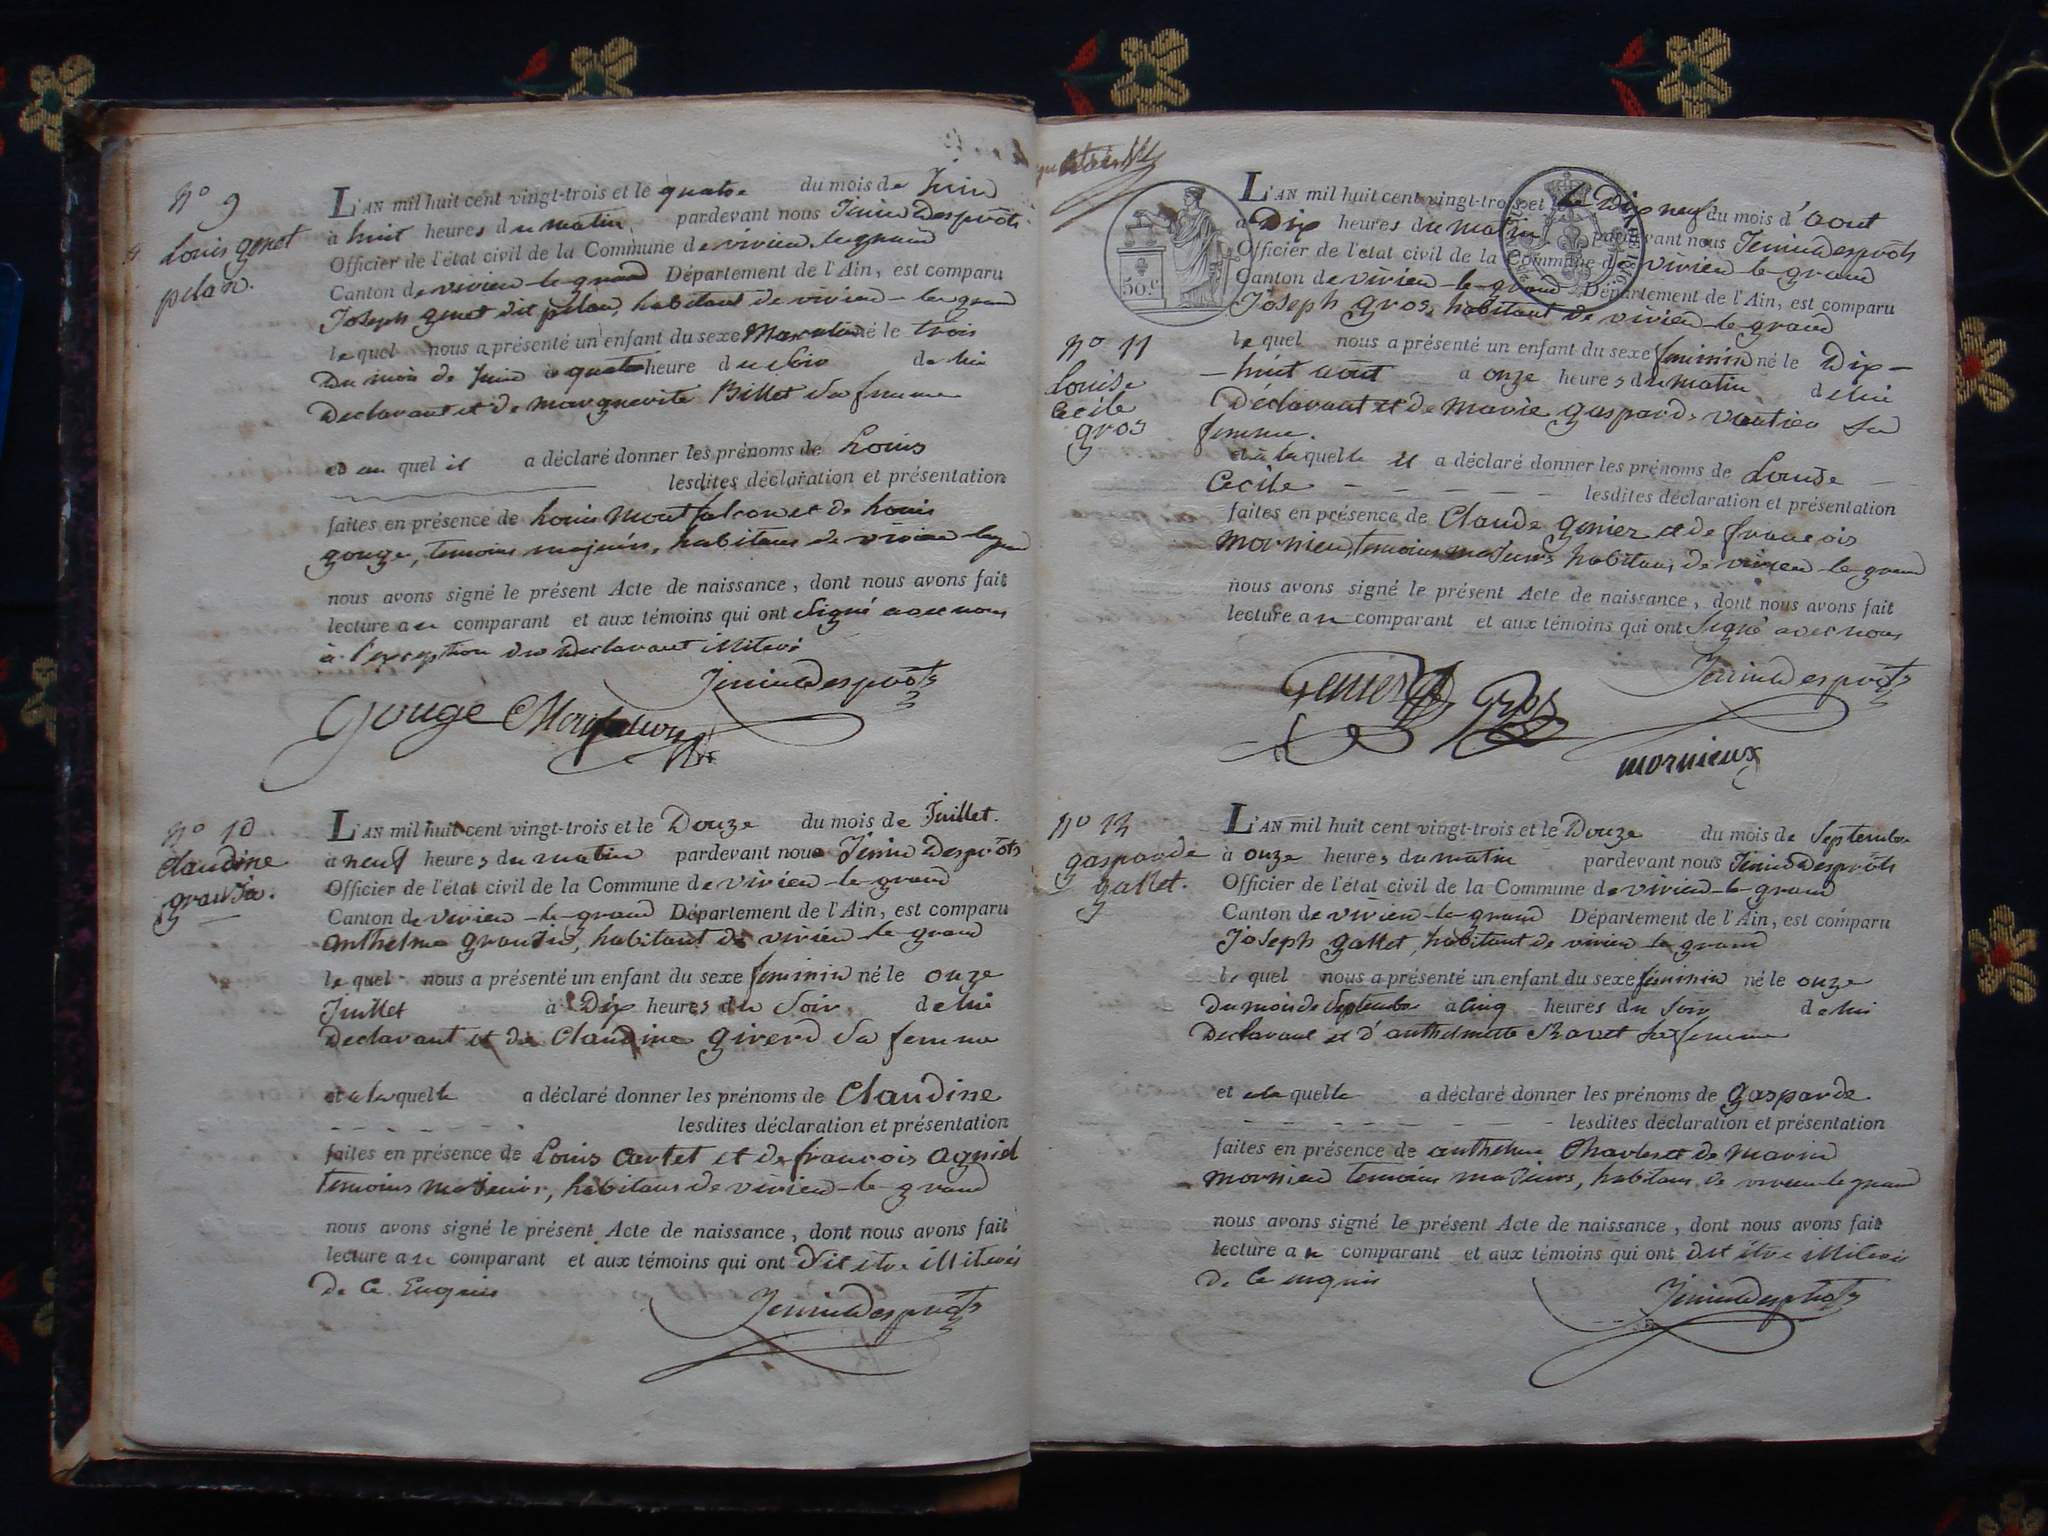 N° 9
Louis genet
pilan.
L'AN mil huit cent vingt-trois et le quatre du mois de Juin
à huit heures du matin pardevant nous Jenin Desprôts
Officier de l'état civil de la Commune de virieu le grand
Canton de virieu-le-grand Département de l'Ain, est comparu
Joseph genet dit pilan, habitant de virieu-le-grand
lequel nous a présenté un enfant du sexe Masculin né le trois
Du mois de Juin à quatre heure du soir de lui
Declarant et de marguerite Billet sa femme
et au quel il a déclaré donner les prénoms de Louis
lesdites déclaration et présentation
faites en présence de Louis Montfalcon et de Louis
gouge, temoins majeurs, habitans de virieu legrand
nous avons signé le présent Acte de naissance, dont nous avons fait
lecture au comparant et aux témoins qui ont signé avec nous
à l'exception du Declarant illiteré
Jenin Desprôts
Gouge Montfalcon
N° 10
Claudine
L'AN mil huit cent vingt-trois et le Douze du mois de Juillet.
à neuf heures du matin pardevant nous Jenin Desprôts
Officier de l'état civil de la Commune de virieu-le-grand
Canton de virieu-le-grand Département de l'Ain, est comparu
anthelme habitant de virieu-le-grand
lequel nous a présenté un enfant du sexe feminin né le onze
Juillet à Dix heures du Soir de lui
Declarant et de Claudine Girerd sa femme
et a laquelle a déclaré donner les prénoms de Claudine
lesdites déclaration et présentation
faites en présence de Louis Cartet et de francois agniel
temoins majeurs, habitans de virieu-le-grand
nous avons signé le présent Acte de naissance, dont nous avons fait
lecture au comparant et aux témoins qui ont dit être illiterés
de ce Enquis
Jenin Desprôts
50.c
L'AN mil huit cent vingt-trois et le Dix neuf du mois d'aout
à Dix heures du matin pardevant nous Jenin Desprôts
Officier de l'état civil de la Commune de virieu-le-grand
Canton de virieu-le-grand Département de l'Ain, est comparu
Joseph gros, habitant de virieu-le-grand
N° 11
Louise
Cecile
gros
lequel nous a présenté un enfant du sexe feminin né le Dix-
-huit aout à onze heures du matin de lui
Déclarant et de Marie gaspard sa
femme.
et à laquelle il a déclaré donner les prénoms de Louise
Cecile lesdites déclaration et présentation
faites en présence de Claude genier et de francois
Mornieu, temoins majeurs habitans de virieu-le-grand
nous avons signé le présent Acte de naissance, dont nous avons fait
lecture au comparant et aux témoins qui ont signé avec nous
Jenin Desprôts
Genier Gros
mornieux
N° 12
gasparde
gallet.
L'AN mil huit cent vingt-trois et le Douze du mois de Septembre
à onze heures du matin pardevant nous Jenin Desprôts
Officier de l'état civil de la Commune de virieu-le-grand
Canton de virieu-le-grand Département de l'Ain, est comparu
Joseph gallet, habitant de virieu-le-grand
le quel nous a présenté un enfant du sexe féminin né le onze
Du mois de Septembre à Cinq heures du soir de lui
Declarant et d'anthelmette Ravet sa femme
et a la quelle a déclaré donner les prénoms de gasparde
lesdites déclaration et présentation
faites en présence de anthelme Charles et de Marin
Mornieu temoins majeurs, habitans de virieu-le-grand
nous avons signé le présent Acte de naissance, dont nous avons fait
lecture au comparant et aux témoins qui ont dit être illiterés
de ce enquis
Jenin Desprôts